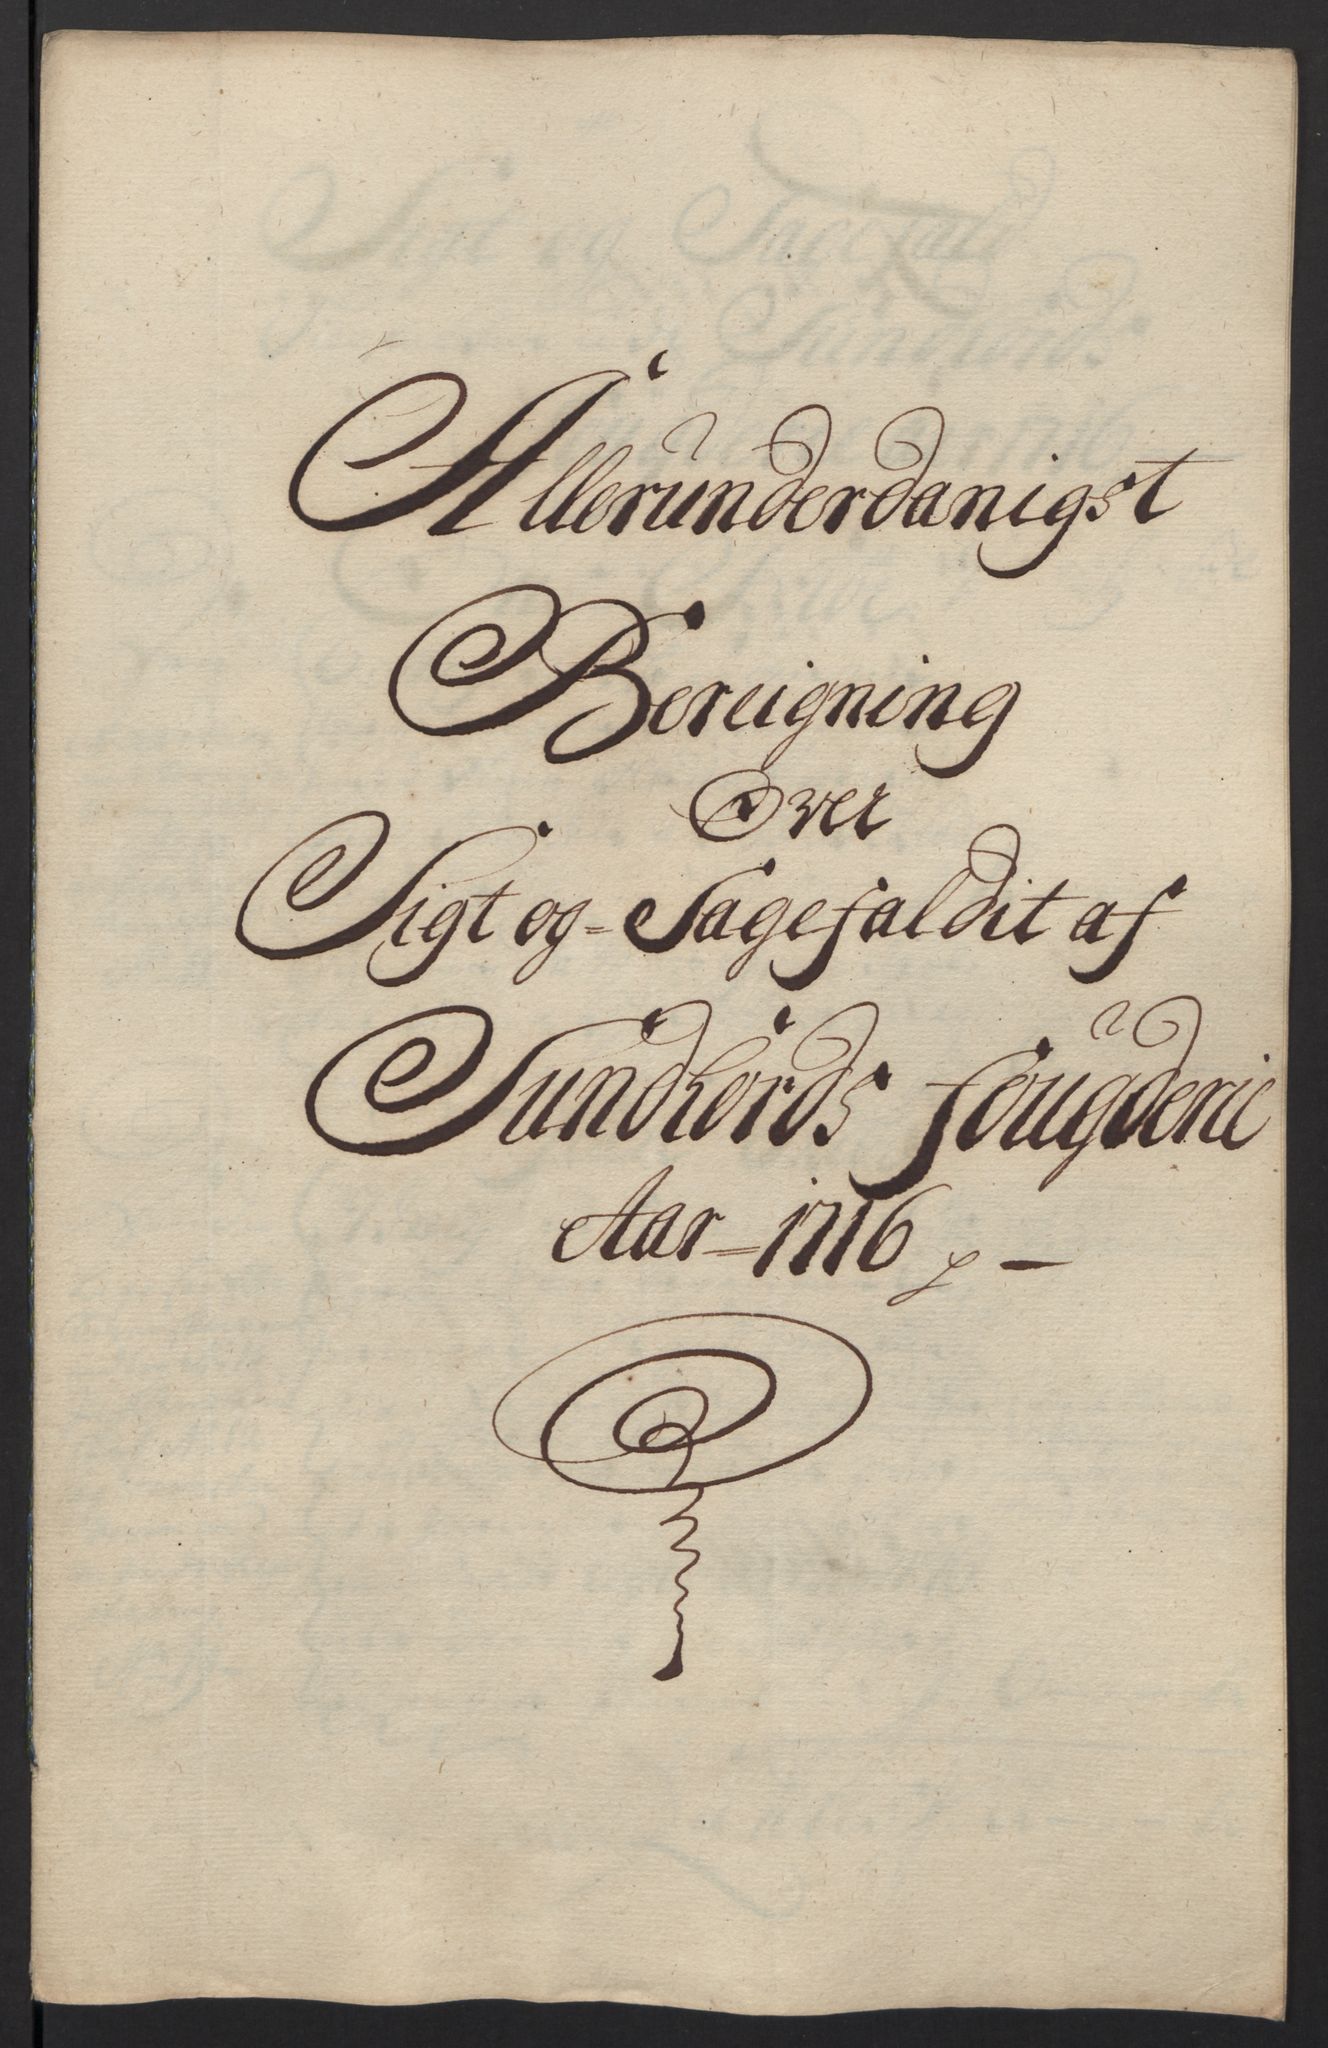 Allerunderdanigst
Bereigning
Over
Sigt og = Sagefaldit af
Sundhords fougderie
Aar = 1716